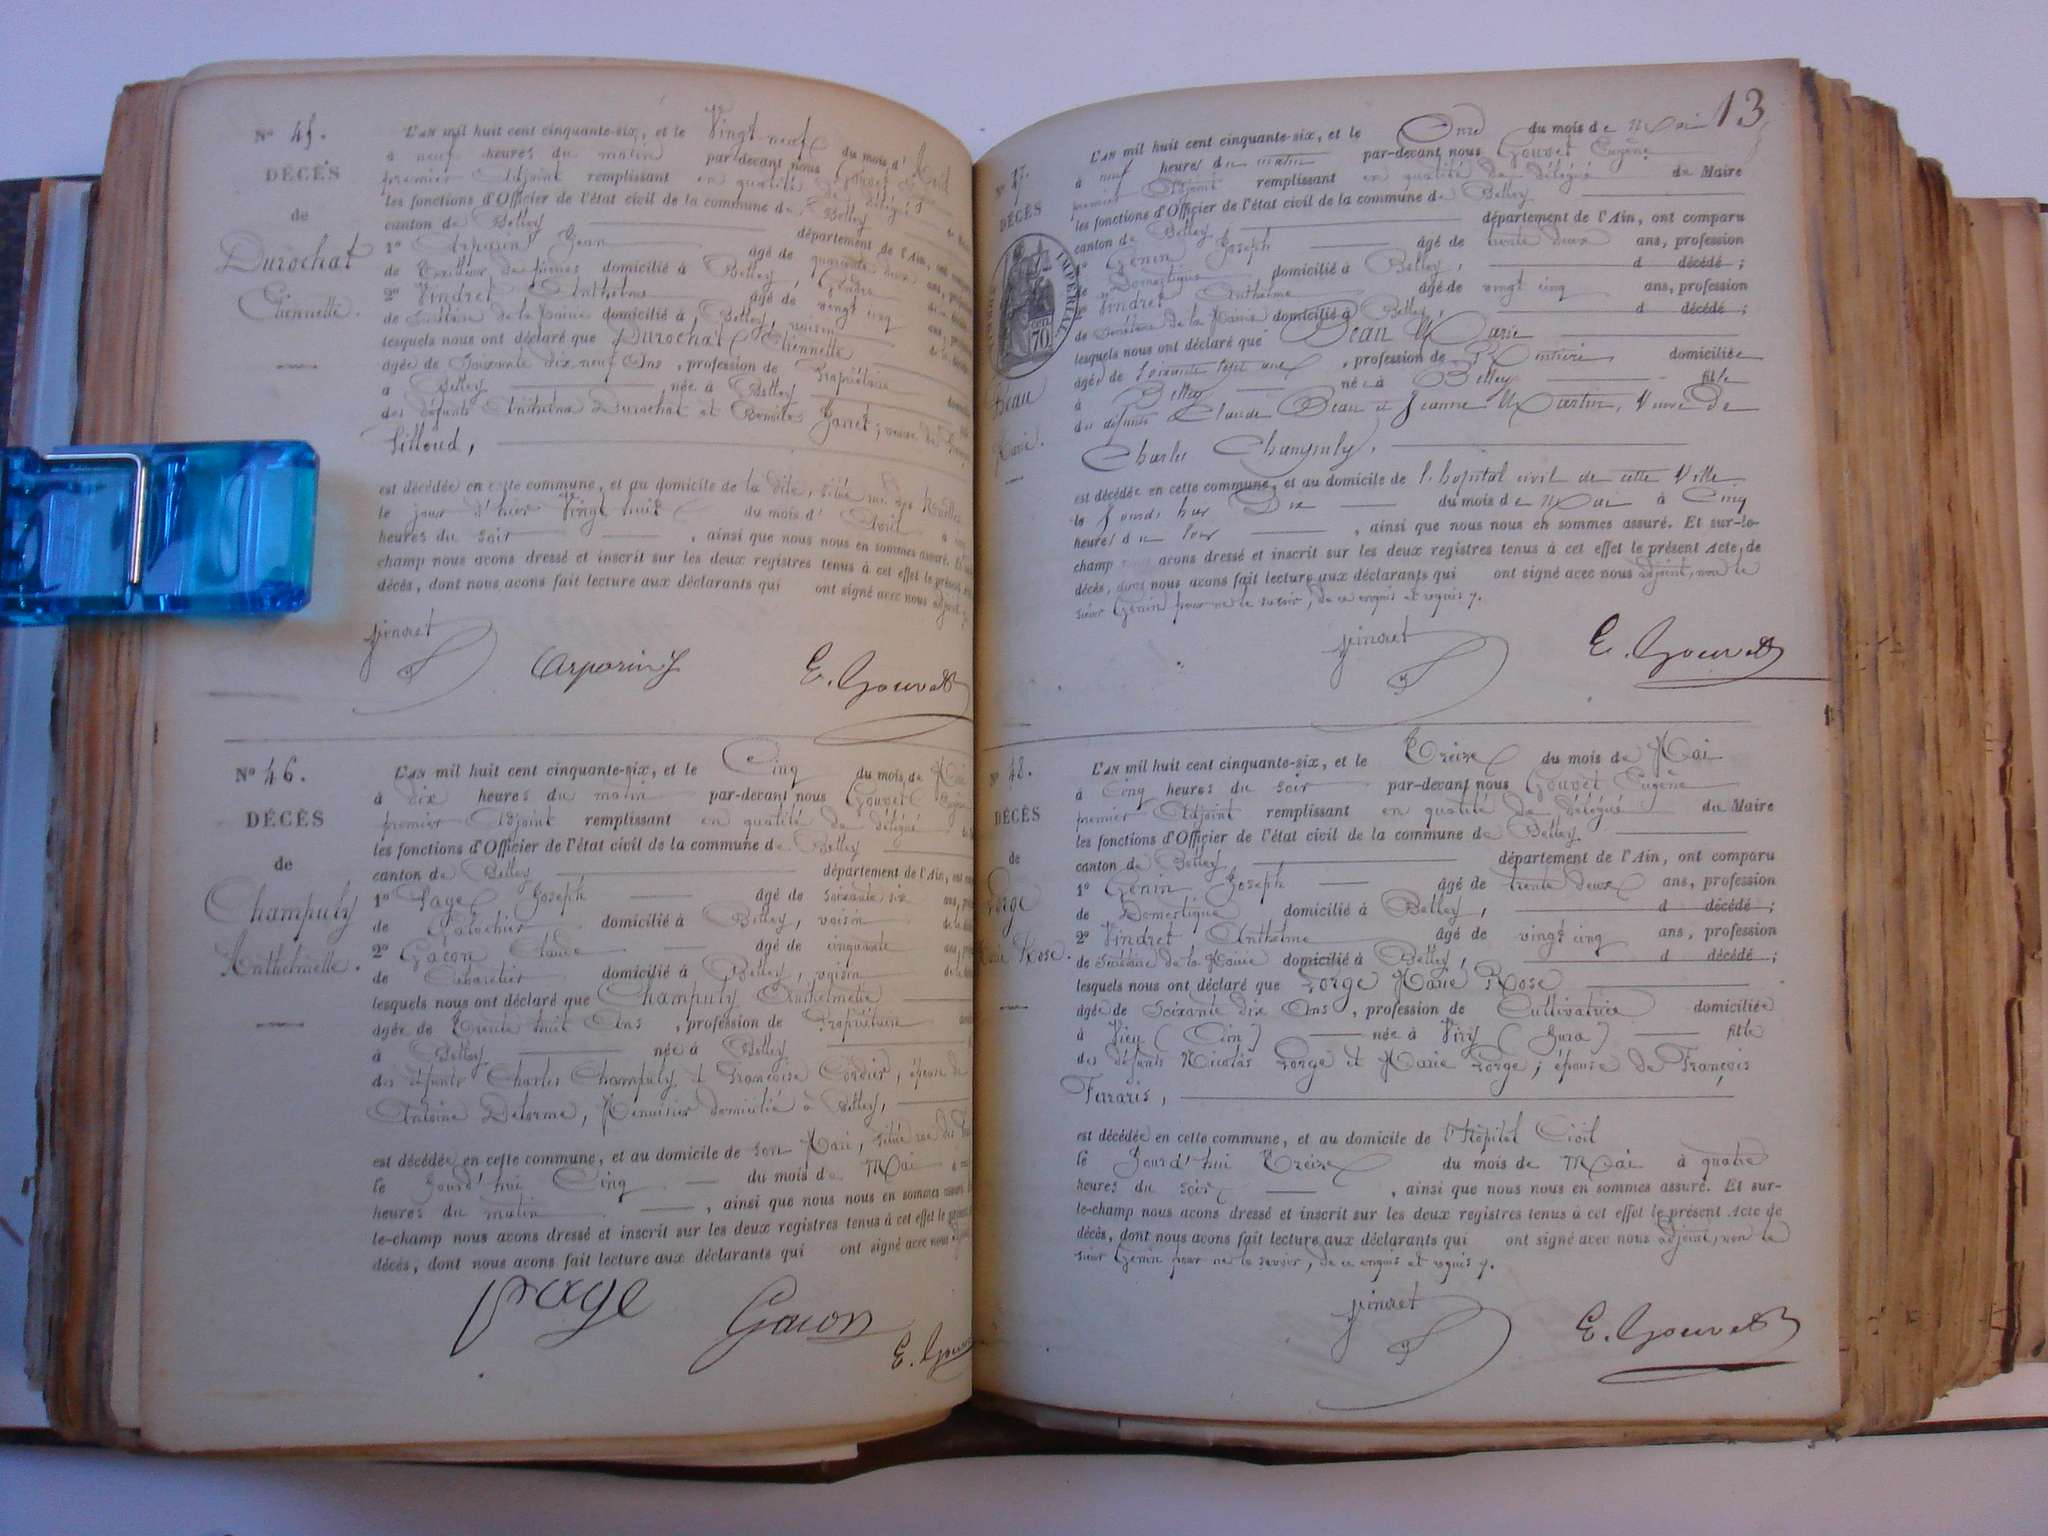 Nº 45.
DÉCÈS
de
Durochat
Etiennette.
L'AN mil huit cent cinquante-six, et le Vingt-neuf du mois d'Avril
à neuf heures du matin par-devant nous Gouvet
premier Adjoint remplissant en qualité de délégué
les fonctions d'Officier de l'état civil de la commune de Belley
canton de Belley département de l'Ain, ont
1º Jean âgé de quarante deux ans,
de Tailleur de pierres domicilié à Belley,
2º Vindret Anthelme âgé de vingt cinq ans,
de Secrétaire de la Mairie domicilié à Belley, voisin
lesquels nous ont déclaré que Durochat Etiennette
âgée de Soixante dix neuf Ans, profession de Propriétaire
à Belley, née à Belley
des défunts Anthelme Durochat et Janet, veuve de
Silloud,
est décédée en cette commune, et au domicile de la dite, située rue des
le jour d'hier Vingt huit du mois d'Avril à
heures du soir, ainsi que nous nous en sommes assuré. Et
champ nous avons dressé et inscrit sur les deux registres tenus à cet effet le
décès, dont nous avons fait lecture aux déclarants qui ont signé avec nous adjoint
E. Gouvet
Nº 46.
DÉCÈS
de
Champuly
Anthelmette.
L'AN mil huit cent cinquante-six, et le Cinq du mois de Mai
à dix heures du matin par-devant nous Gouvet Eugène
premier Adjoint remplissant en qualité de délégué
les fonctions d'Officier de l'état civil de la commune de Belley
canton de Belley département de l'Ain, ont
1º Page Joseph âgé de soixante six ans,
de Galochier domicilié à Belley, voisin de la
2º Gacon Claude âgé de cinquante ans,
de Cabaretier domicilié à Belley, voisin de la
lesquels nous ont déclaré que Champuly Anthelmette
âgée de Trente huit Ans, profession de Propriétaire
à Belley née à Belley
des défunts Charles Champuly et Françoise Cordier, épouse de
Antoine Delorme, Menuisier domicilié à Belley,
est décédée en cette commune, et au domicile de son Mari, située rue des
le Jourd'hui Cinq du mois de Mai à
heures du matin, ainsi que nous nous en sommes assuré.
le-champ nous avons dressé et inscrit sur les deux registres tenus à cet effet le présent
décès, dont nous avons fait lecture aux déclarants qui ont signé avec nous
page Gacon E. Gouvet
13
Nº 47.
DÉCÈS
IMPÉRIAL
CEN. 70
Beau
Marie.
L'AN mil huit cent cinquante-six, et le Onze du mois de Mai
à neuf heures du matin par-devant nous Gouvet Eugène
premier Adjoint remplissant en qualité de délégué du Maire
les fonctions d'Officier de l'état civil de la commune de Belley
canton de Belley département de l'Ain, ont comparu
1º Genin Joseph âgé de trente deux ans, profession
de Domestique domicilié à Belley, d décédé;
2º Vindret Anthelme âgé de vingt cinq ans, profession
de Secrétaire de la Mairie domicilié à Belley, d décédé;
lesquels nous ont déclaré que Beau Marie
âgée de Soixante sept ans, profession de Rentière domiciliée
à Belley née à Belley fille
du défunt Claude Beau et Jeanne Martin, Veuve de
Charles Champuly,
est décédée en cette commune, et au domicile de l'hopital civil de cette Ville
le Jourd'hier Dix du mois de Mai à Cinq
heures du soir, ainsi que nous nous en sommes assuré. Et sur-le-
champ nous avons dressé et inscrit sur les deux registres tenus à cet effet le présent Acte de
décès, dont nous avons fait lecture aux déclarants qui ont signé avec nous adjoint, non le
sieur Genin pour ne le savoir, de ce enquis et requis.
E. Gouvet
Nº 48.
DÉCÈS
de
Lorge
Marie Rose.
L'AN mil huit cent cinquante-six, et le Treize du mois de Mai
à Cinq heures du soir par-devant nous Gouvet Eugène
premier Adjoint remplissant en qualité de délégué du Maire
les fonctions d'Officier de l'état civil de la commune de Belley
canton de Belley département de l'Ain, ont comparu
1º Genin Joseph âgé de trente deux ans, profession
de Domestique domicilié à Belley, d décédé;
2º Vindret Anthelme âgé de vingt cinq ans, profession
de Secrétaire de la Mairie domicilié à Belley, d décédé;
lesquels nous ont déclaré que Lorge Marie Rose
âgée de Soixante dix Ans, profession de Cultivatrice domiciliée
à Vieu (Ain) née à Viry (Jura) fille
des défunts Nicolas Lorge et Marie Lorge; épouse de François
Ferraris,
est décédée en cette commune, et au domicile de l'Hôpital Civil
le Jourd'hui Treize du mois de Mai à quatre
heures du soir, ainsi que nous nous en sommes assuré. Et sur-
le-champ nous avons dressé et inscrit sur les deux registres tenus à cet effet le présent Acte de
décès, dont nous avons fait lecture aux déclarants qui ont signé avec nous adjoint, non le
sieur Genin pour ne le savoir, de ce enquis et requis.
E. Gouvet